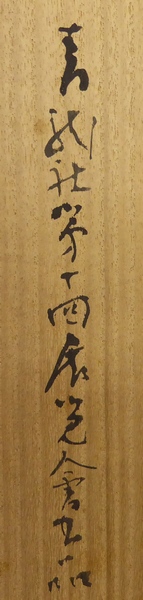 青龍社第十四展覧會出品